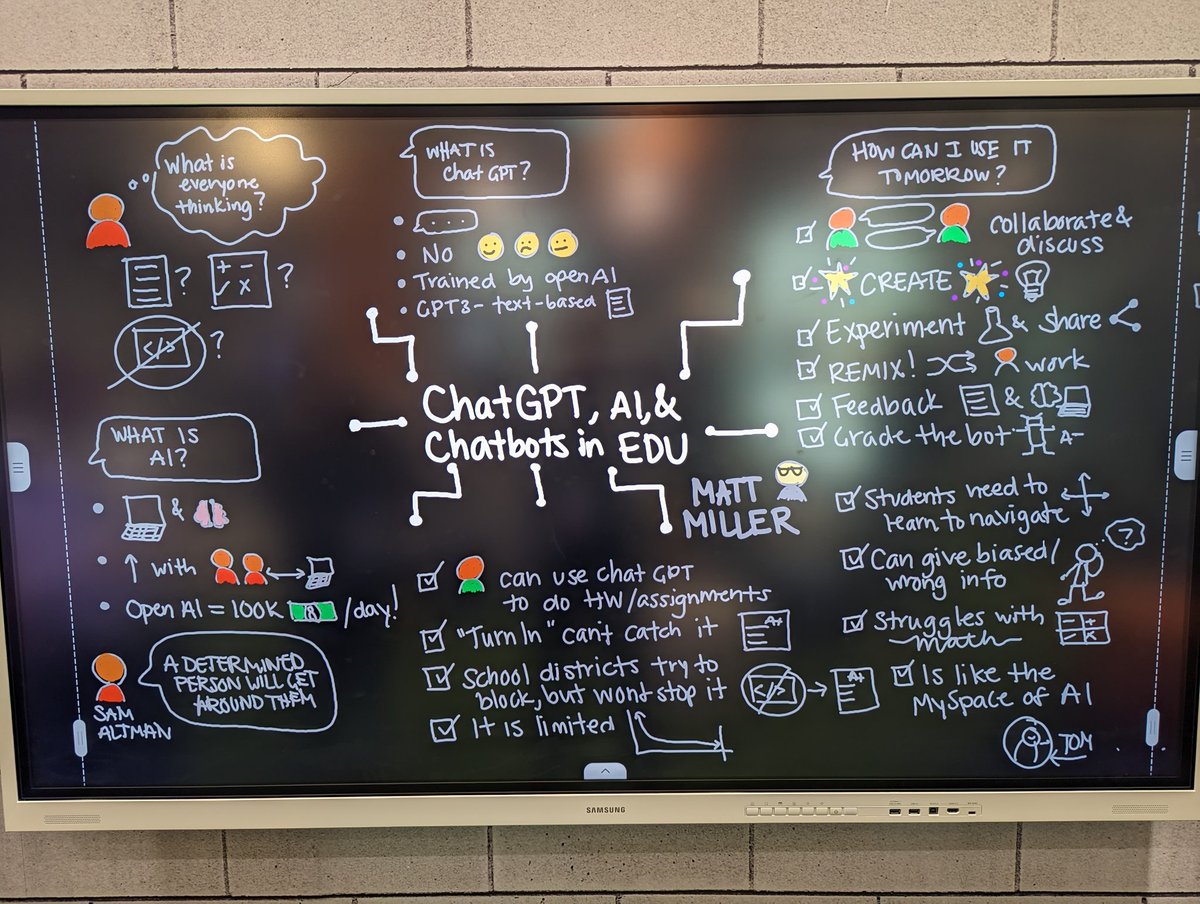 What is
everyone
thinking?
?
+ -
✓ x
?
</>
?
WHAT IS
AI?
&
↑ with
Open AI = 100K /day!
A DETERMINED
PERSON WILL GET
AROUND THEM
SAM
ALTMAN
WHAT IS
Chat GPT?
...
No
Trained by open AI
GPT3 - text-based
ChatGPT, AI, &
Chatbots in EDU
MATT
MILLER
can use chat GPT
to do HW/assignments
"Turn In" can't catch it
A+
School districts try to
block, but wont stop it
</>
A+
It is limited
HOW CAN I USE IT
TOMORROW?
collaborate &
discuss
CREATE
Experiment & share
REMIX! work
Feedback &
Grade the bot A-
Students need to
learn to navigate
Can give biased/
wrong info
?
Struggles with
math
Is like the
MySpace of AI
TOM
SAMSUNG